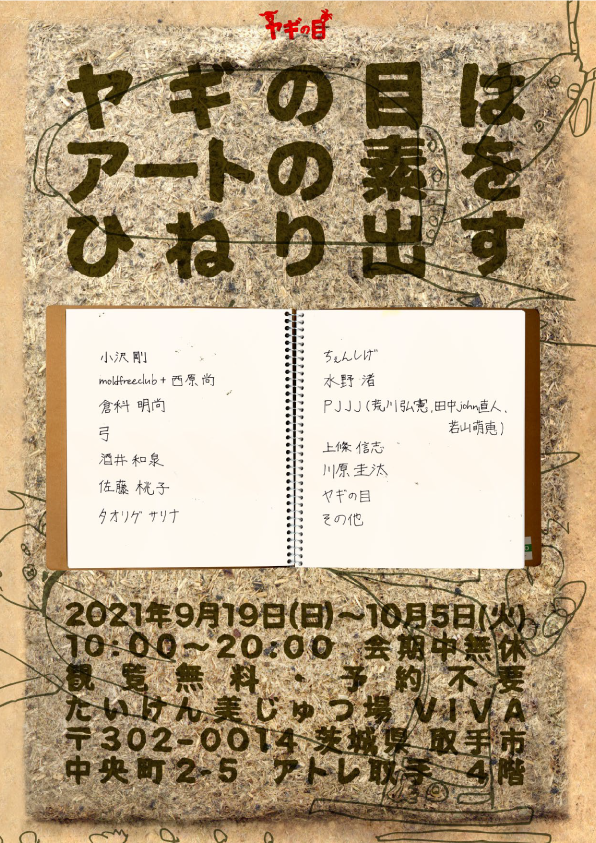 ヤギの目
ヤギの目は
アートの素を
ひねり出す
小沢剛
moldfreeclub + 西原尚
倉科 明尚
弓
酒井和泉
佐藤 桃子
タオリゲ サリナ
ちぇんしげ
水野 渚
PJJJ(荒川弘憲,田中john直人,
若山萌恵)
上條 信志
川原 圭汰
ヤギの目
その他
2021年9月19日(日)〜10月5日(火)
10:00〜20:00 会期中無休
観覧無料・予約不要
たいけん美じゅつ場 VIVA
〒302-0014 茨城県 取手市
中央町2-5 アトレ取手 4階